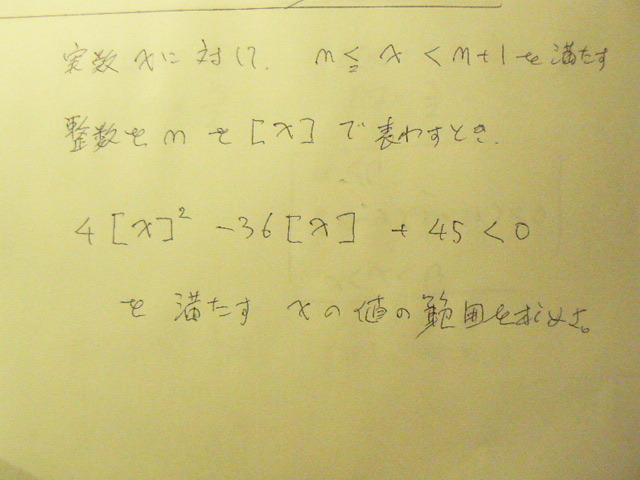 実数xに対して. n≦x<n+1を満たす
整数を n を[x]で表わすとき.
4[x]² -36[x] + 45<0
を満たす xの値の範囲を求めよ。